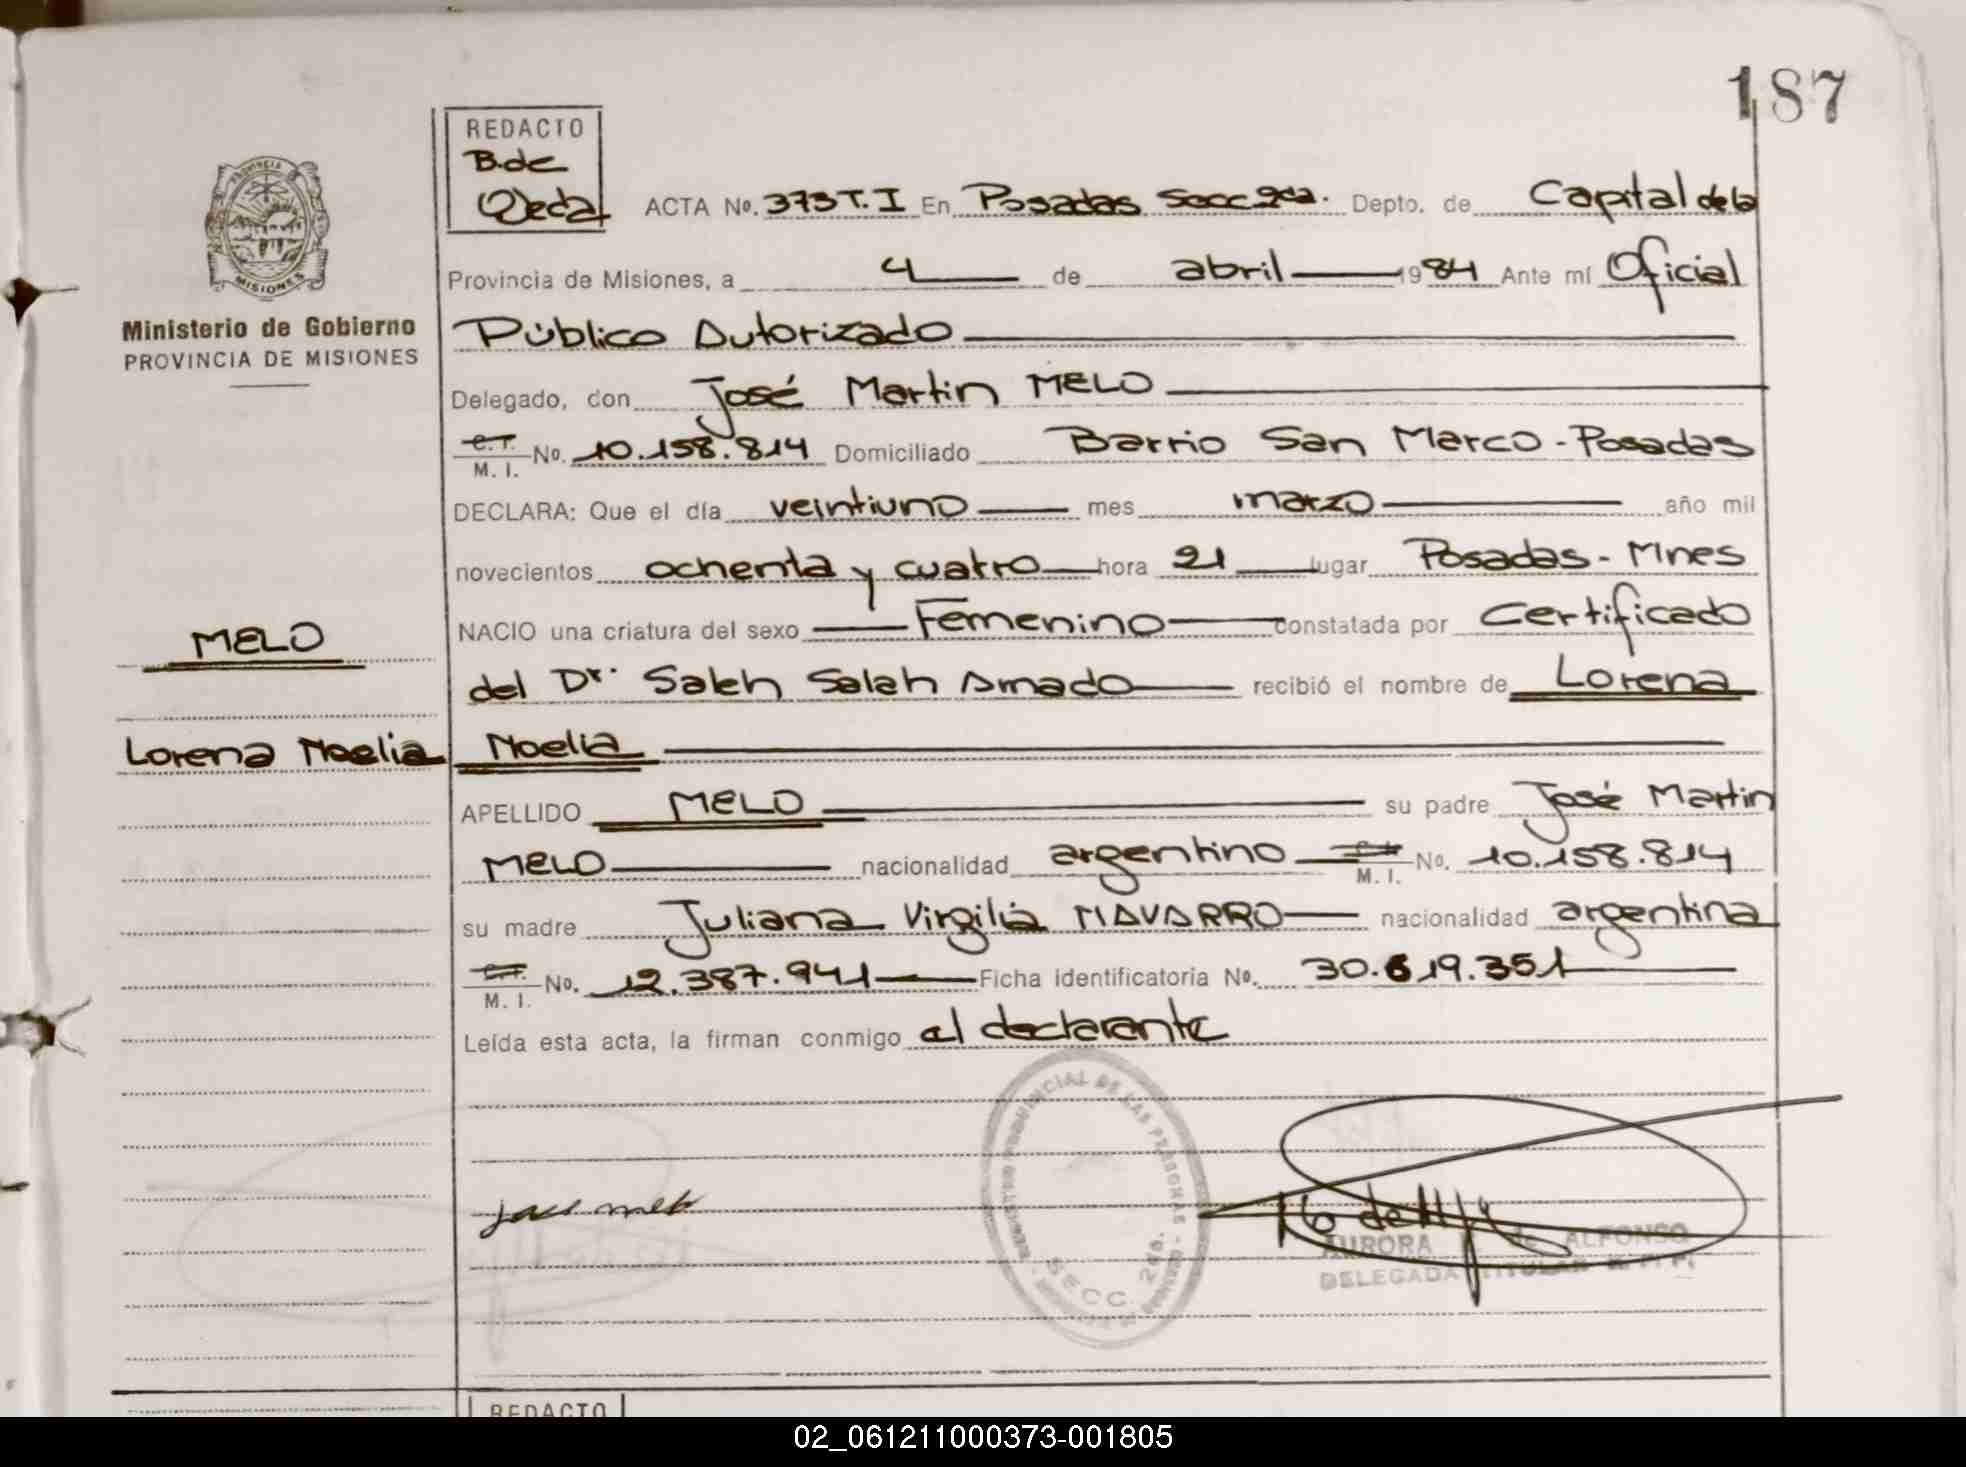 187
REDACTO
B. de
Ojeda
ACTA No. 373 T. I En Posadas Secc 2da. Depto. de Capital de la
Provincia de Misiones, a 4 de abril 1984 Ante mí Oficial
Público Autorizado
Delegado, don José Martin MELO
C. I. M. I. No. 10.158.814 Domiciliado Barrio San Marco - Posadas
DECLARA: Que el día veintiuno mes marzo año mil
novecientos ochenta y cuatro hora 21 lugar Posadas - Mnes
NACIO una criatura del sexo Femenino constatada por Certificado
del Dr. Saleh Salah Amado recibió el nombre de Lorena
Noelia
APELLIDO MELO su padre José Martin
MELO nacionalidad argentino C. I. M. I. No. 10.158.814
su madre Juliana Virgilia NAVARRO nacionalidad argentina
C. I. M. I. No. 12.387.941 Ficha identificatoria No. 30.619.351
Leída esta acta, la firman conmigo el declarante
PROVINCIA
MISIONES
Ministerio de Gobierno
PROVINCIA DE MISIONES
MELO
Lorena Noelia
REGISTRO PROVINCIAL DE LAS PERSONAS
SECC. 2da.
AURORA de ALFONSO
DELEGADA TITULAR R. P. P.
REDACTO
02_061211000373-001805